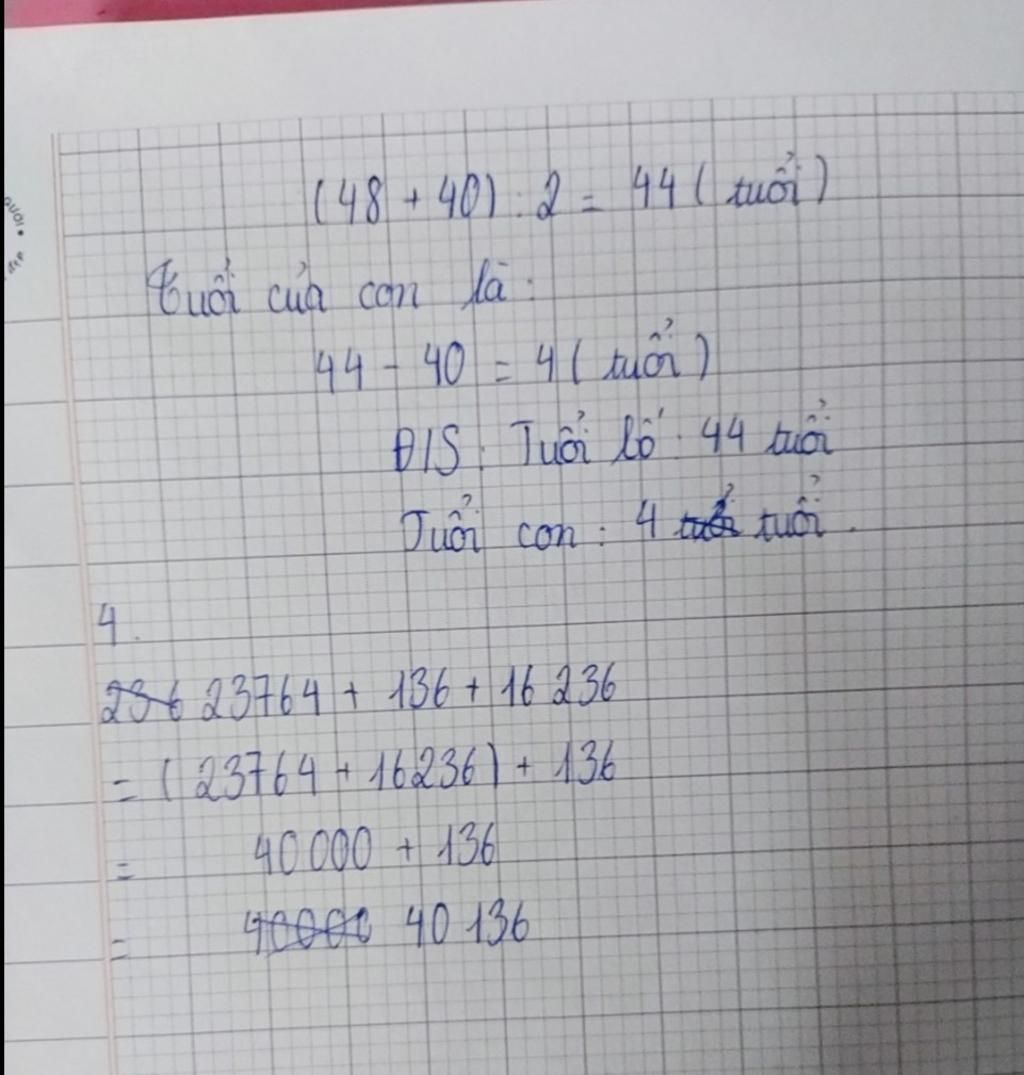 (48 + 40) : 2 = 44 ( tuổi )
tuổi của con là :
44 - 40 = 4 ( tuổi )
Đ/S : Tuổi bố : 44 tuổi
Tuổi con : 4 tuổi tuổi .
4.
236 23764 + 136 + 16 236
= ( 23764 + 16236 ) + 136
= 40 000 + 136
= 40000 40 136